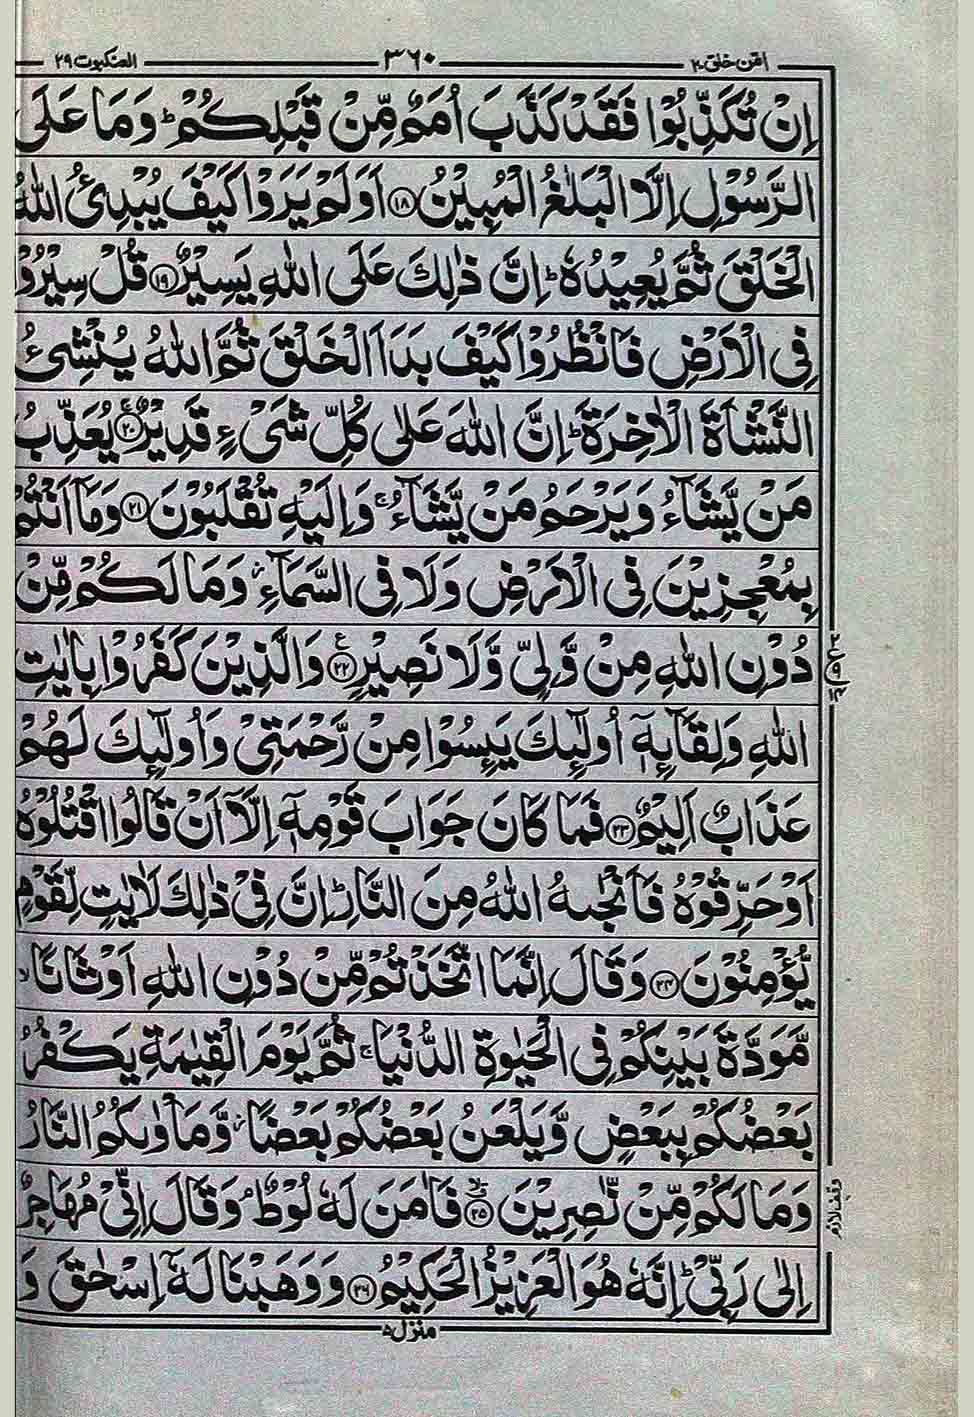 العنكبوت ٢٩ ٣٦٠ امن خلق ٢٠
اِنْ تُكَذِّبُوْا فَقَدْ كَذَّبَ اُمَمٌ مِّنْ قَبْلِكُمْ ؕ وَمَا عَلَى
الرَّسُوْلِ اِلَّا الْبَلٰغُ الْمُبِيْنُ ﴿۱۸﴾ اَوَلَمْ يَرَوْا كَيْفَ يُبْدِئُ اللّٰهُ
الْخَلْقَ ثُمَّ يُعِيْدُهٗ ؕ اِنَّ ذٰلِكَ عَلَى اللّٰهِ يَسِيْرٌ ﴿۱۹﴾ قُلْ سِيْرُوْ
فِى الْاَرْضِ فَانْظُرُوْا كَيْفَ بَدَاَ الْخَلْقَ ثُمَّ اللّٰهُ يُنْشِئُ
النَّشْاَةَ الْاٰخِرَةَ ؕ اِنَّ اللّٰهَ عَلٰى كُلِّ شَىْءٍ قَدِيْرٌ ﴿۲۰﴾ يُعَذِّبُ
مَنْ يَّشَآءُ وَيَرْحَمُ مَنْ يَّشَآءُ ۚ وَاِلَيْهِ تُقْلَبُوْنَ ﴿۲۱﴾ وَمَاۤ اَنْتُمْ
بِمُعْجِزِيْنَ فِى الْاَرْضِ وَلَا فِى السَّمَآءِ ؗ وَمَا لَكُمْ مِّنْ
دُوْنِ اللّٰهِ مِنْ وَّلِىٍّ وَّلَا نَصِيْرٍ ﴿۲۲﴾ ع وَالَّذِيْنَ كَفَرُوْا بِاٰيٰتِ
اللّٰهِ وَلِقَآئِهٖۤ اُولٰٓئِكَ يَئِسُوْا مِنْ رَّحْمَتِىْ وَاُولٰٓئِكَ لَهُمْ
عَذَابٌ اَلِيْمٌ ﴿۲۳﴾ فَمَا كَانَ جَوَابَ قَوْمِهٖۤ اِلَّاۤ اَنْ قَالُوا اقْتُلُوْهُ
اَوْ حَرِّقُوْهُ فَاَنْجٰىهُ اللّٰهُ مِنَ النَّارِ ؕ اِنَّ فِىْ ذٰلِكَ لَاٰيٰتٍ لِّقَوْمٍ
يُّؤْمِنُوْنَ ﴿۲۴﴾ وَقَالَ اِنَّمَا اتَّخَذْتُمْ مِّنْ دُوْنِ اللّٰهِ اَوْثَانًا ۙ
مَّوَدَّةَ بَيْنِكُمْ فِى الْحَيٰوةِ الدُّنْيَا ۚ ثُمَّ يَوْمَ الْقِيٰمَةِ يَكْفُرُ
بَعْضُكُمْ بِبَعْضٍ وَّيَلْعَنُ بَعْضُكُمْ بَعْضًا ؗ وَّمَاْوٰىكُمُ النَّارُ
وَمَا لَكُمْ مِّنْ نّٰصِرِيْنَ ﴿۲۵﴾ فَاٰمَنَ لَهٗ لُوْطٌ ۘ وَقَالَ اِنِّىْ مُهَاجِرٌ
اِلٰى رَبِّىْ ؕ اِنَّهٗ هُوَ الْعَزِيْزُ الْحَكِيْمُ ﴿۲۶﴾ وَوَهَبْنَا لَهٗۤ اِسْحٰقَ وَ
وقف لازم
منزل ۵